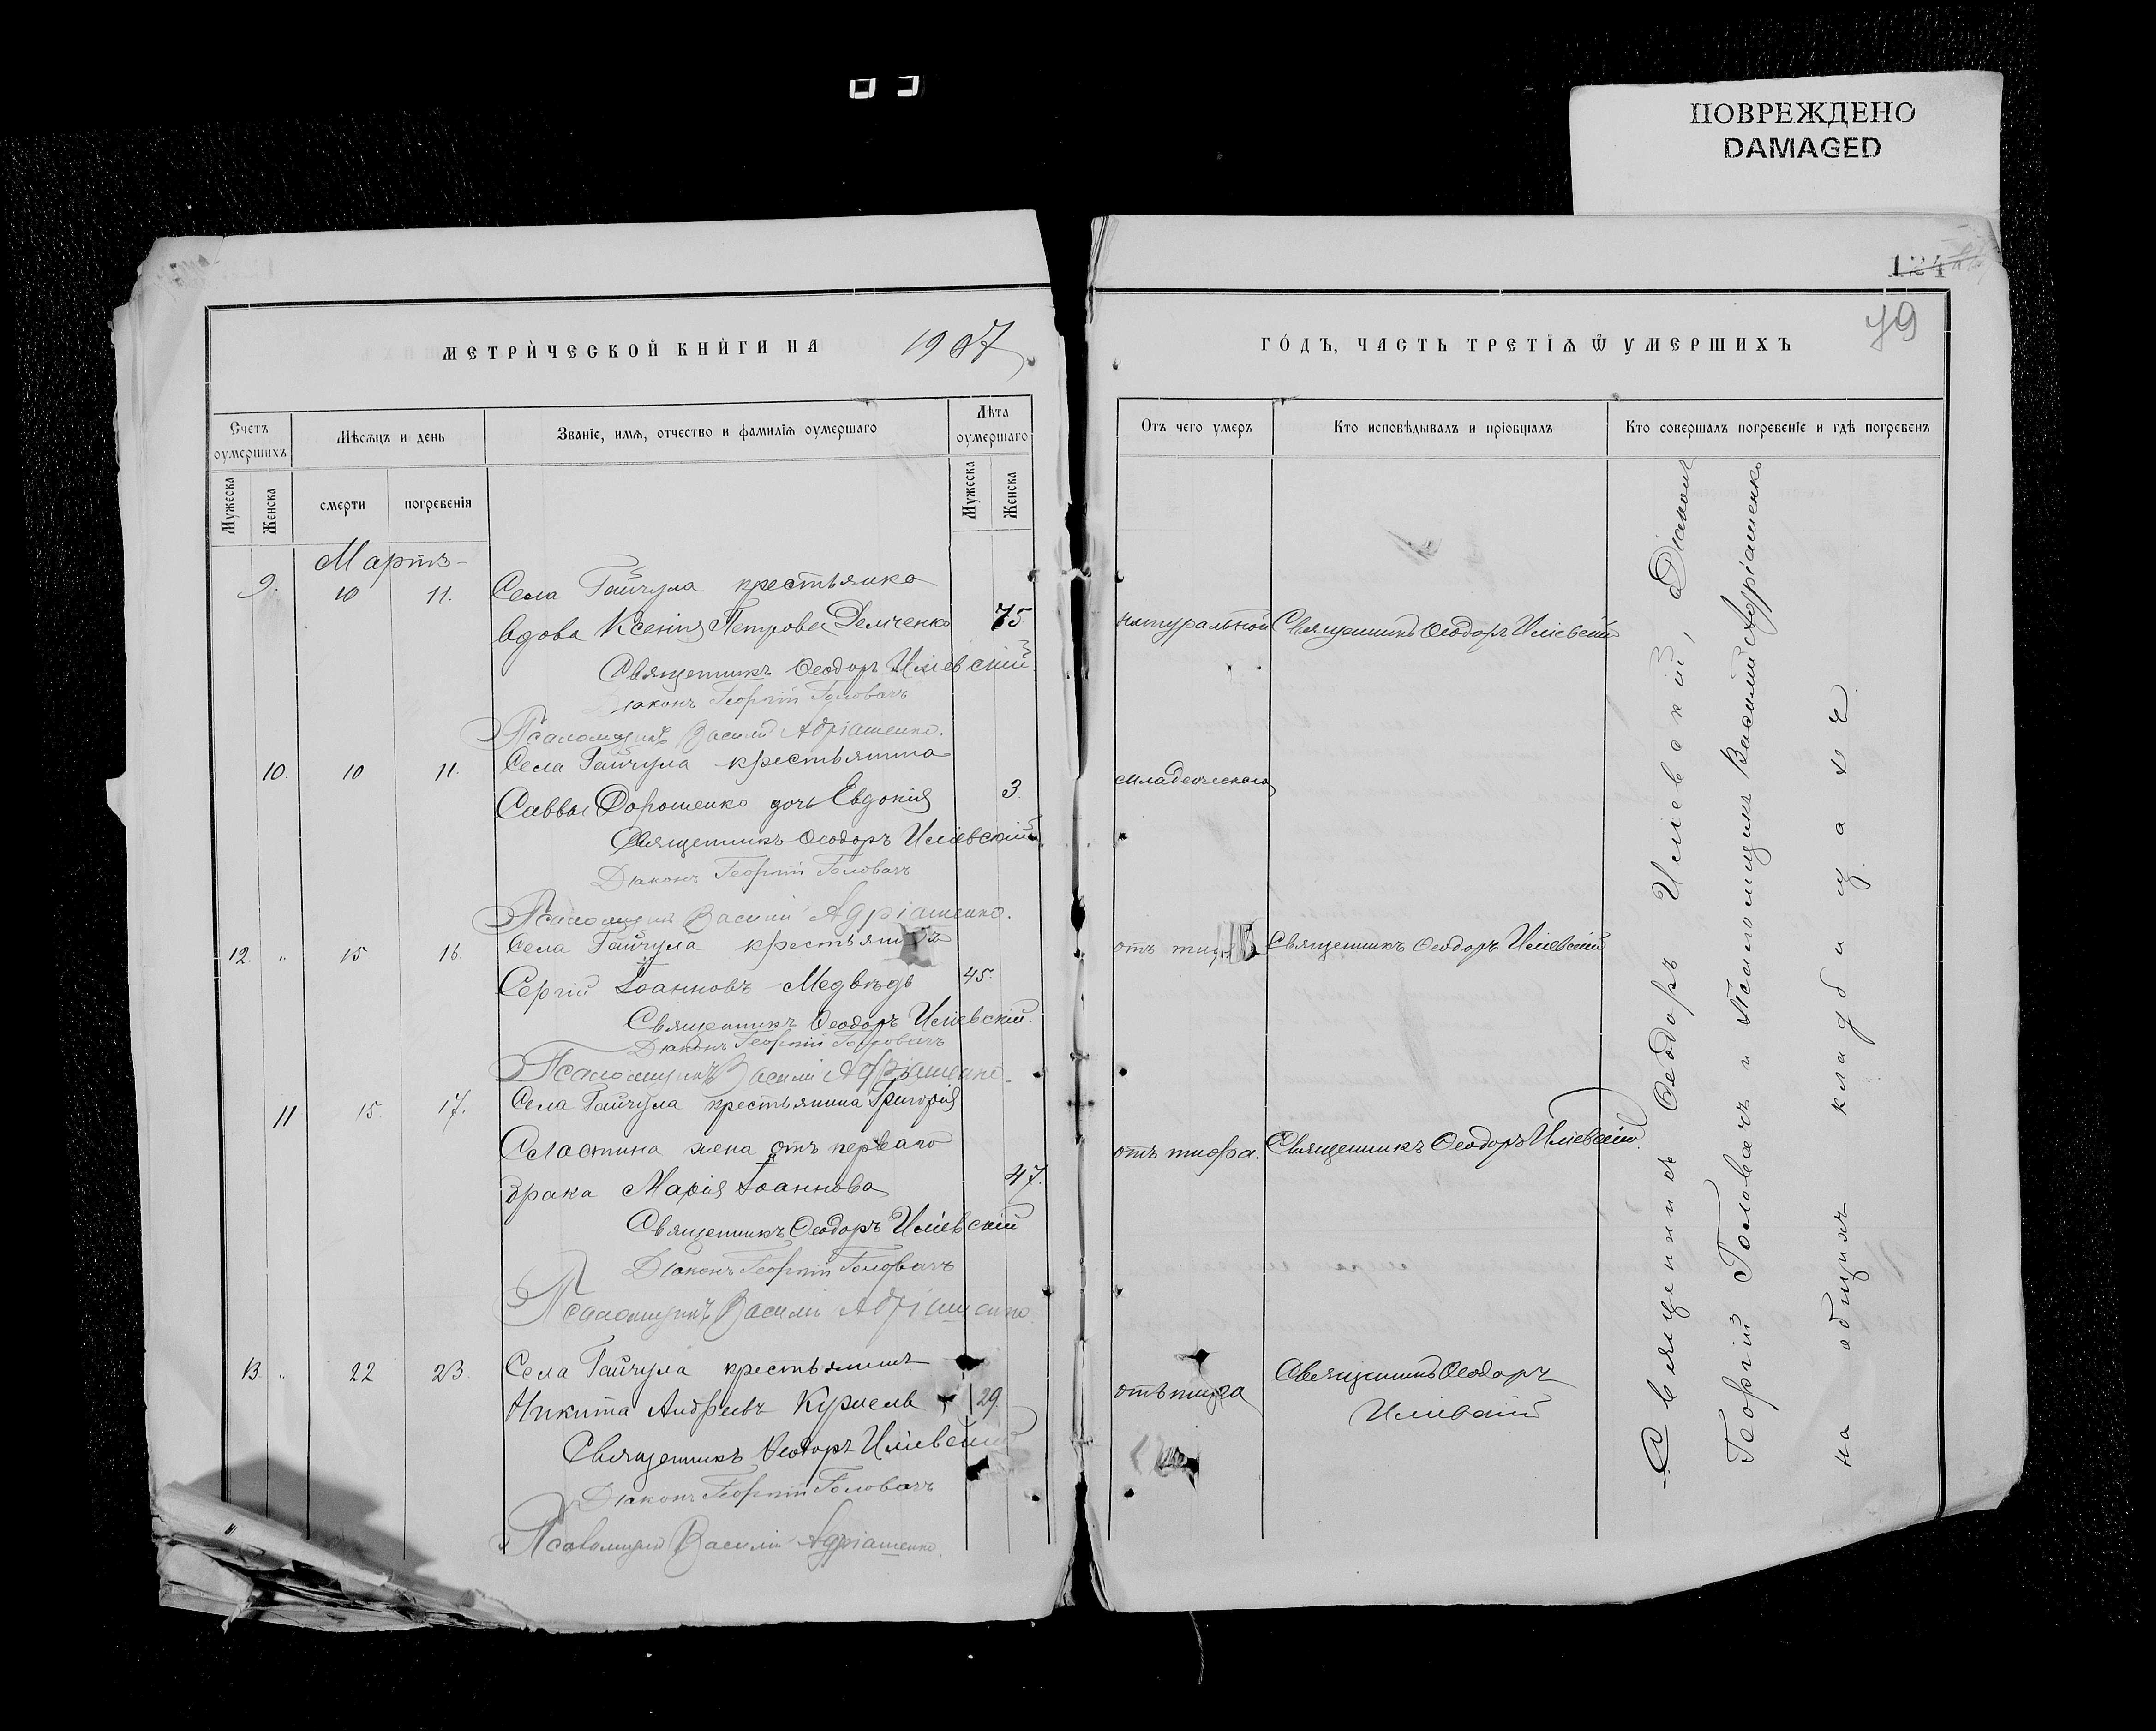 ПОВРЕЖДЕНО
DAMAGED
124
79
МЕТРИ́ЧЕСКОЙ КНИ́ГИ НА 1907
ГО́ДЪ, ЧАСТЬ ТРЕТІѦ Ѿ УМЕРШИХЪ
Счетъ оумершихъ
Мѣсѧцъ и день
Званіе, имѧ, отчество и фамиліѧ оумершаго
Лѣта оумершаго
Отъ чего умеръ
Кто исповѣдывалъ и пріобщалъ
Кто совершалъ погребеніе и гдѣ погребенъ
Мужеска
Женска
смерти
погребенія
Мужеска
Женска
Мартъ
9. 10 11. Села Гайчула крестьянка
вдова Ксенія Петрова Демченко 75 натуральной Священникъ Ѳеодоръ Иліевскій
Священникъ Ѳеодоръ Иліевскій
Діаконъ Георгій Головачъ
Псаломщикъ Василій Адріашенко.
10. 10 11. Села Гайчула крестьянина
Саввы Дорошенко дочь Евдокія 3. младенческаго
Священникъ Ѳеодоръ Иліевскій
Діаконъ Георгій Головачъ
Псаломщикъ Василій Адріашенко.
12. " 15 16. Села Гайчула крестьянинъ отъ Священникъ Ѳеодоръ Иліевскій
Сергій Іоанновъ Медвѣдь 45.
Священникъ Ѳеодоръ Иліевскій.
Діаконъ Георгій Головачъ
Псаломщикъ Василій Адріашенко.
11 15. 17. Села Гайчула крестьянина Григорія
Сластина жена отъ перваго отъ тифа. Священникъ Ѳеодоръ Иліевскій
брака Марія Іоаннова 47.
Священникъ Ѳеодоръ Иліевскій
Діаконъ Георгій Головачъ
Псаломщикъ Василій Адріашенко
13. " 22 23. Села Гайчула крестьянинъ
Никита Андреевъ 29. отъ тифа Священникъ Ѳеодоръ
Иліевскій
Священникъ Ѳеодоръ Иліевскій
Діаконъ Георгій Головачъ
Псаломщикъ Василій Адріашенко.
Священникъ Ѳеодоръ Иліевскій, Діаконъ
Георгій Головачъ и Псаломщикъ Василій Адріашенко
на общихъ кладбищахъ